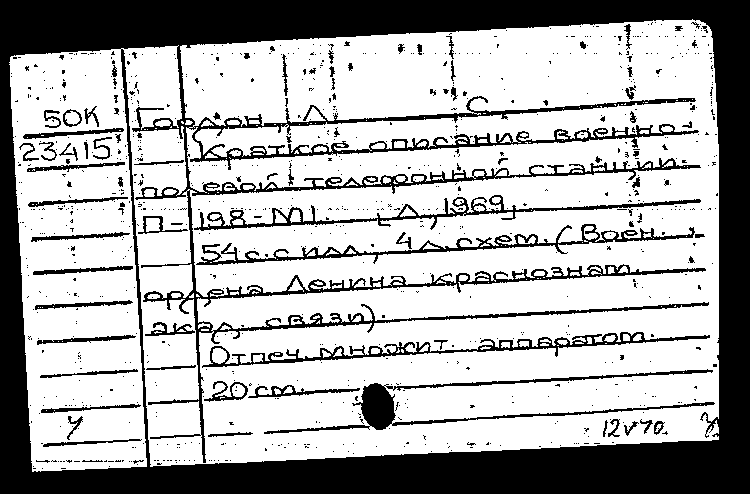 50К Гордон, Л С.
23415 Краткое описание военно-
полевой телефонной станции.
П-198-МI. [Л., 1969].
54 с. с илл.; 4 л. схем. (Воен.
ордена Ленина краснознам.
акад. связи).
Отпеч. множит. аппаратом.
20 см.
У 12 V 70.